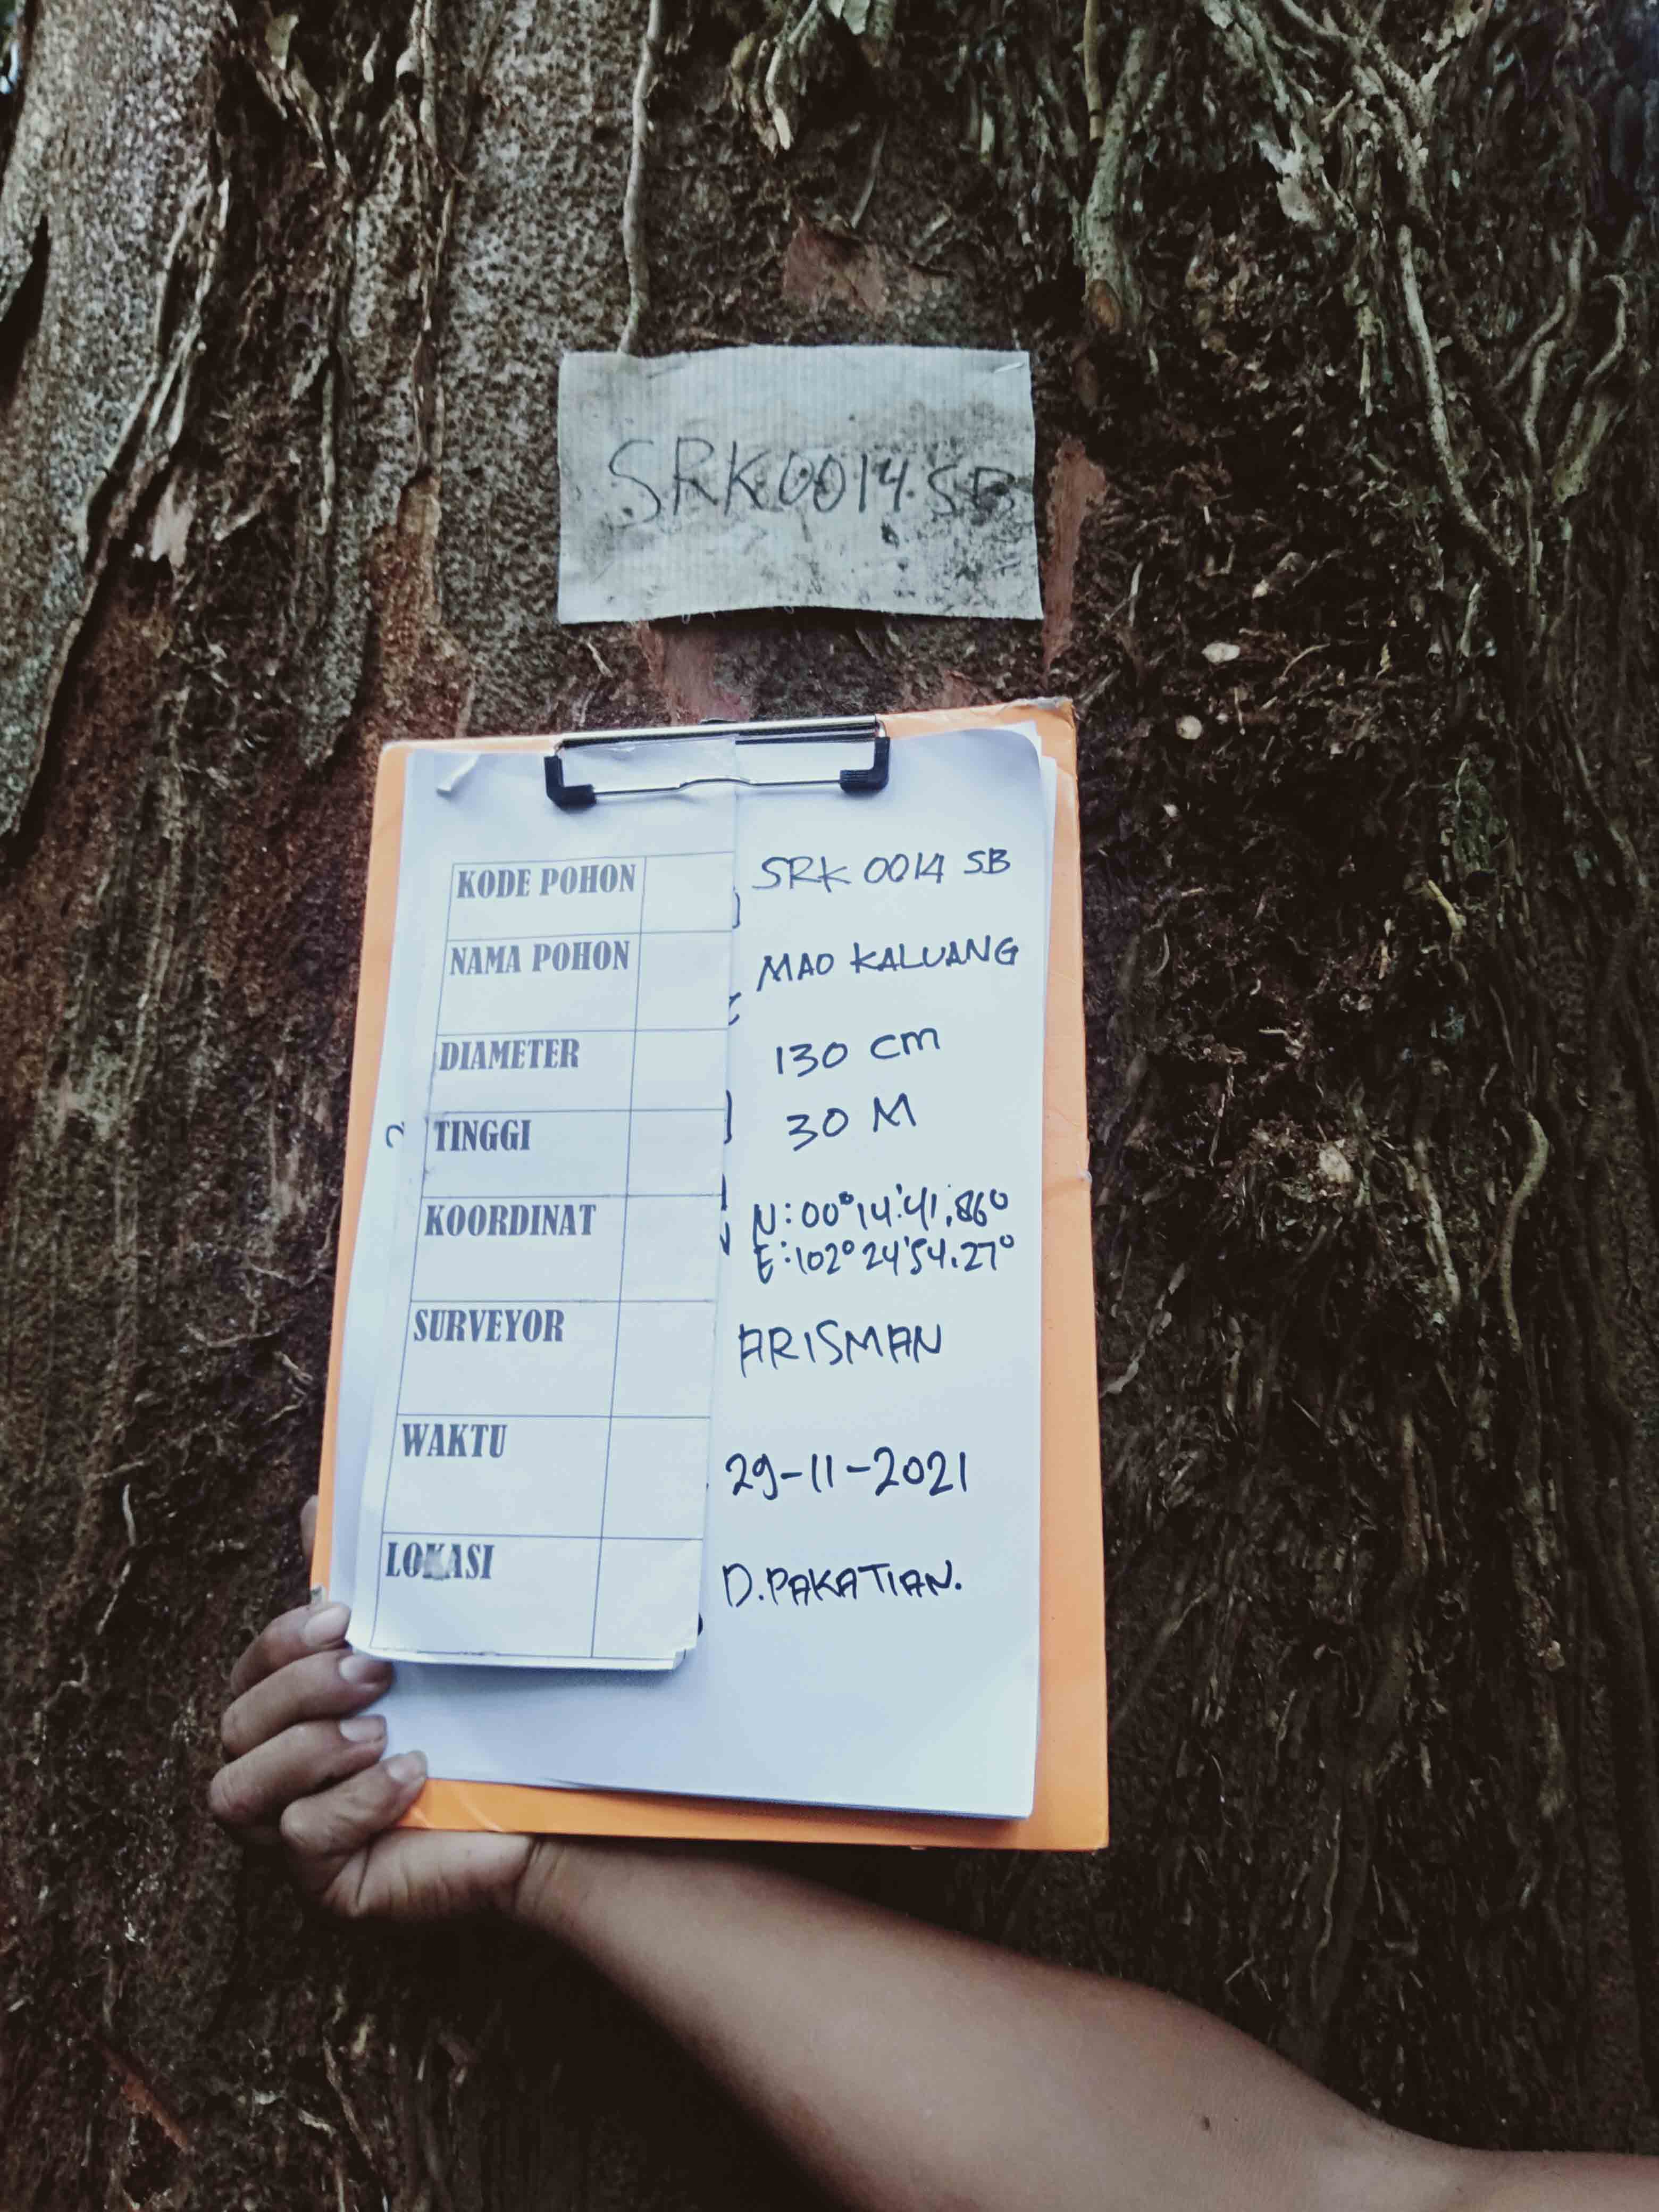 SRK0014.SB
KODE POHON SRK 0014 SB
NAMA POHON MAO KALUANG
DIAMETER 130 cm
TINGGI 30 M
KOORDINAT N:00°14'.41,86°
E:102°24'54.27°
SURVEYOR ARISMAN
WAKTU 29-11-2021
LOKASI D.PAKATIAN.